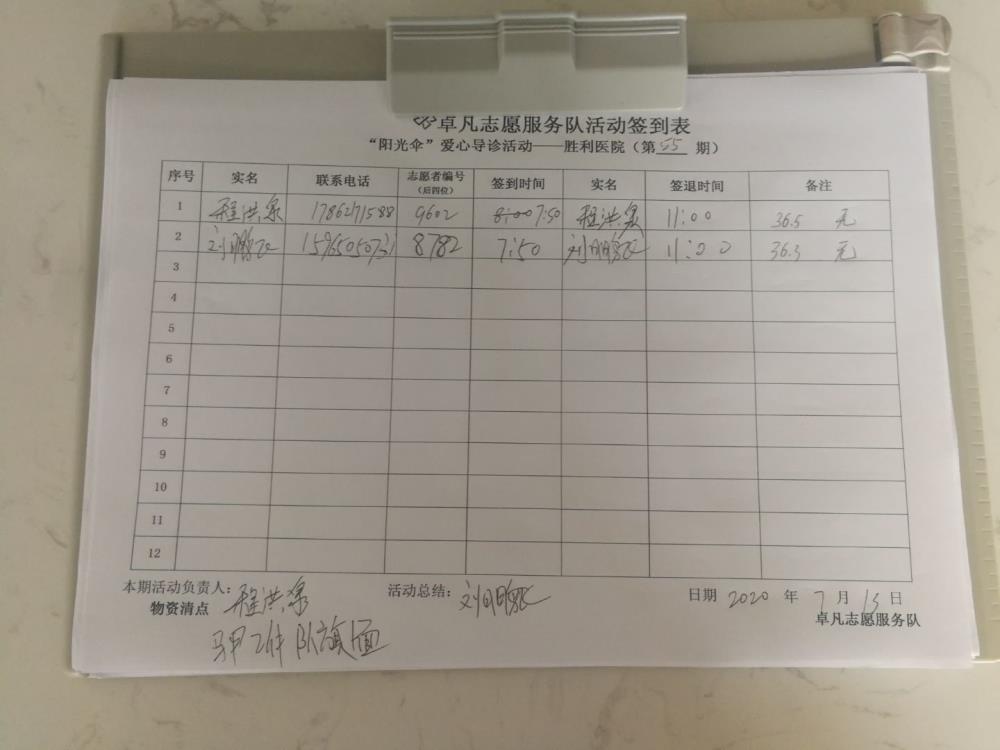 卓凡志愿服务队活动签到表
“阳光伞”爱心导诊活动——胜利医院（第55期）
序号 实名 联系电话 志愿者编号（后四位） 签到时间 实名 签退时间 备注
1 程洪泉 17862171588 9602 8:00 7:50 程洪泉 11:00 36.5 无
2 刘鹏飞 15965050731 8782 7:50 刘鹏飞 11:00 36.3 无
3
4
5
6
7
8
9
10
11
12
本期活动负责人：程洪泉 活动总结：刘鹏飞 日期 2020 年 7 月 15 日
物资清点 卓凡志愿服务队
马甲2件 队旗1面